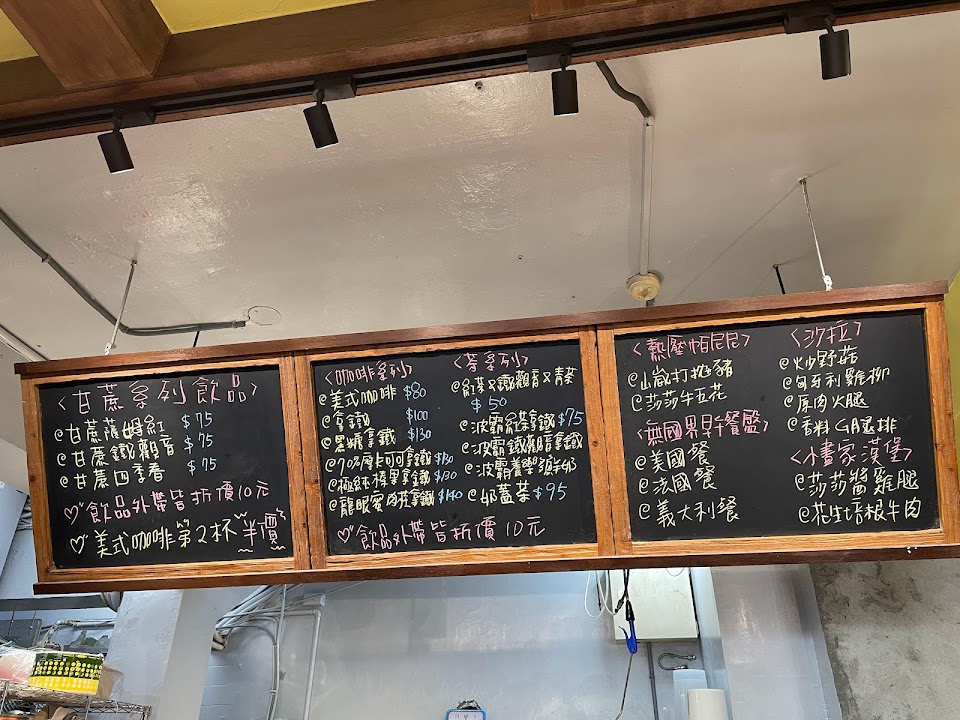 <甘蔗系列飲品>
@甘蔗薩姆紅 $75
@甘蔗鐵觀音 $75
@甘蔗四季春 $75
♡飲品外帶皆折價10元
♡美式咖啡第2杯半價
<咖啡系列>
@美式咖啡 $80
@拿鐵 $100
@黑糖拿鐵 $130
@70%厚卡可可拿鐵 $130
@極純榛果拿鐵 $130
@龍眼蜜肉桂拿鐵 $140
♡飲品外帶皆折價10元
<茶系列>
@紅茶又鐵觀音又青茶
$50
@波霸紅茶拿鐵 $75
@波霸鐵觀音拿鐵
@波霸
@奶蓋茶 $95
<熱壓帕尼尼>
@山葳打拋豬
@莎莎牛五花
<無國界早午餐盤>
@美國餐
@法國餐
@義大利餐
<沙拉>
@火炒野菇
@匈牙利雞柳
@厚肉火腿
@香料G腿排
<小畫家漢堡>
@莎莎醬雞腿
@花生培根牛肉